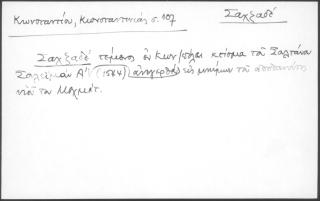 Κωνσταντίου, Κωνσταντινιάς σ. 107
Σαχζαδέ
Σαχζαδέ τέμενος ἐν Κων/πόλει κτίσμα τοῦ Σουλτάνου
Σουλεϊμὰν Α' (1544) ἀνεγερθὲν εἰς μνήμην τοῦ ἀποθανόντος
υἱοῦ του Μεχμέτ.